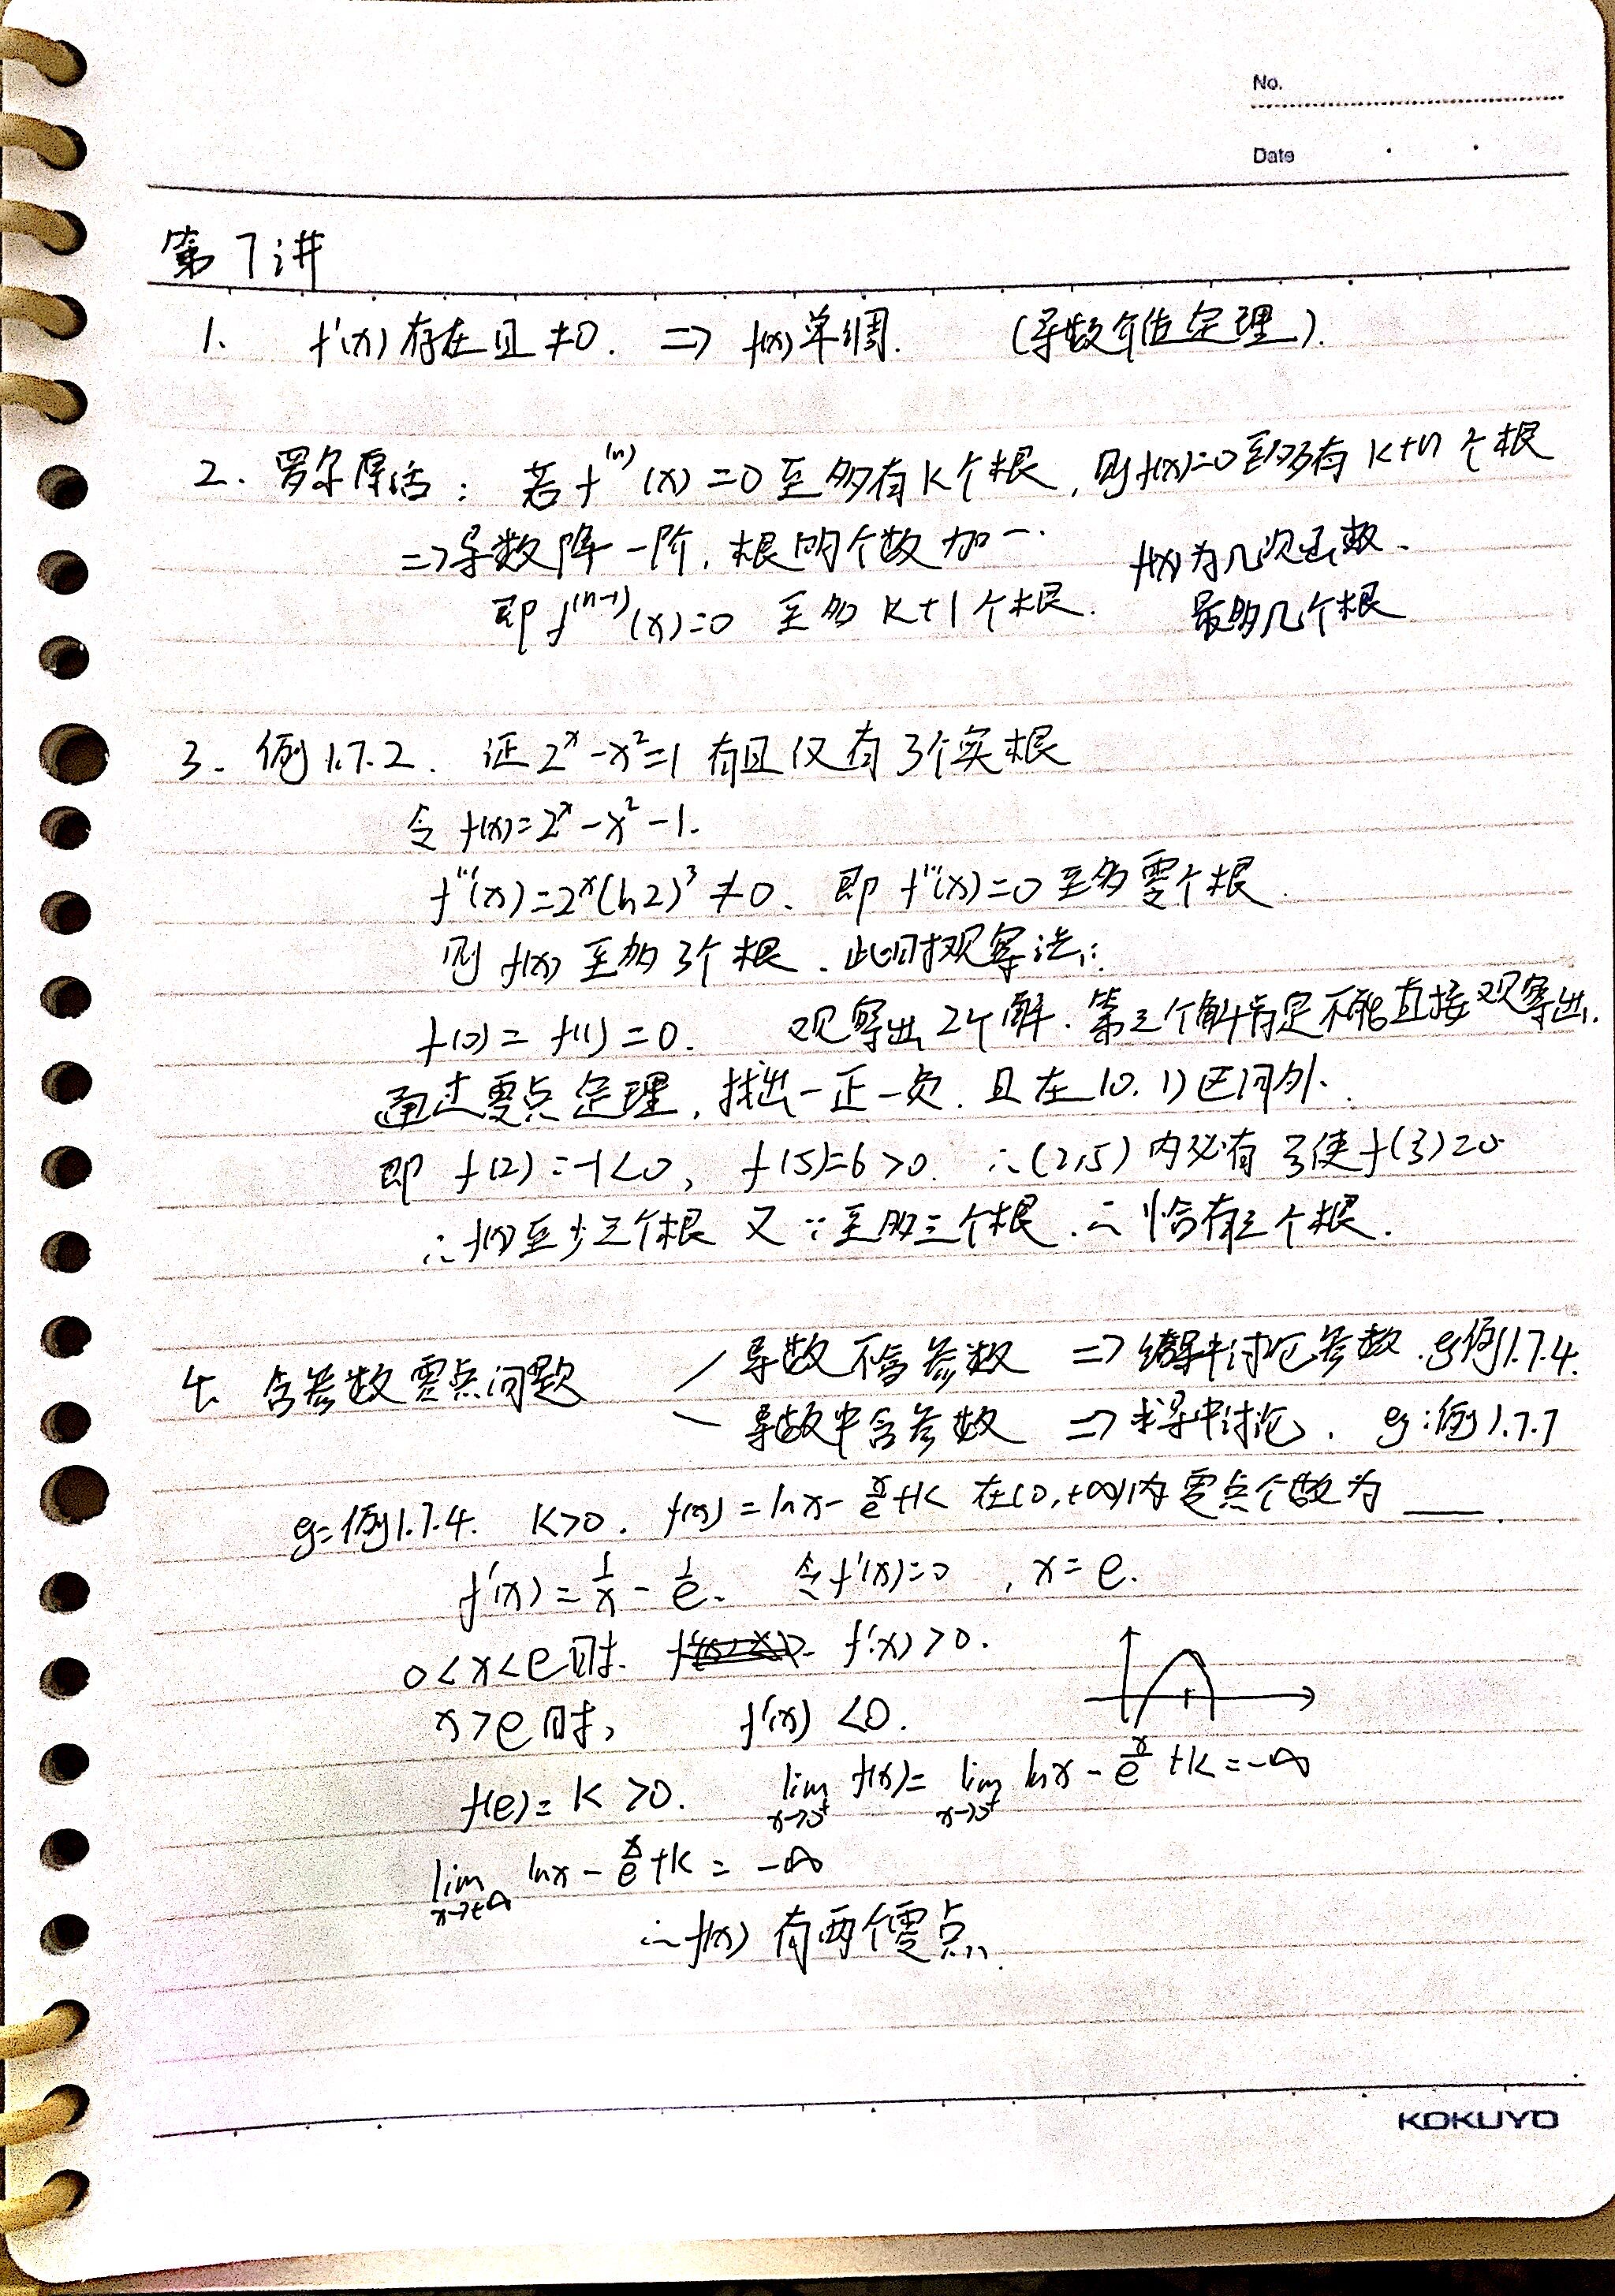 No.
Date
第7讲
1. f'(x)存在且≠0. => f(x)单调. (导数介值定理).
2. 罗尔原话: 若f⁽ⁿ⁾(x)=0至多有k个根, 则f(x)=0至多有k+n个根
=>导数降一阶, 根的个数加一. f(x)为几次函数.
即f⁽ⁿ⁻¹⁾(x)=0 至多k+1个根. 最多几个根
3. 例1.7.2. 证2ˣ-x²=1 有且仅有3个实根
令f(x)=2ˣ-x²-1.
f'''(x)=2ˣ(ln2)³≠0. 即f'''(x)=0至多零个根.
则f(x)至多3个根. 此时观察法:
f(0)=f(1)=0. 观察出2个解. 第三个解肯定不能直接观察出.
通过零点定理, 找出一正一负. 且在(0,1)区间外.
即 f(2)=-1<0, f(5)=6>0. ∴(2,5)内必有ξ使f(ξ)=0
∴f(x)至少三个根 又∵至多三个根. ∴恰有三个根.
4. 含参数零点问题 导数不含参数 => 结果中讨论参数. eg例1.7.4.
导数中含参数 => 求导中讨论. eg:例1.7.7
eg:例1.7.4. k>0. f(x)=lnx-x/e+k 在(0,+∞)内零点个数为____.
f'(x)=1/x-1/e. 令f'(x)=0, x=e.
0<x<e时. f'(x)>0.
x>e时, f'(x)<0.
f(e)=k>0. lim x→0⁺ f(x)=lim x→0⁺ lnx-x/e+k=-∞
lim x→+∞ lnx-x/e+k=-∞
∴f(x)有两个零点.
KOKUYO